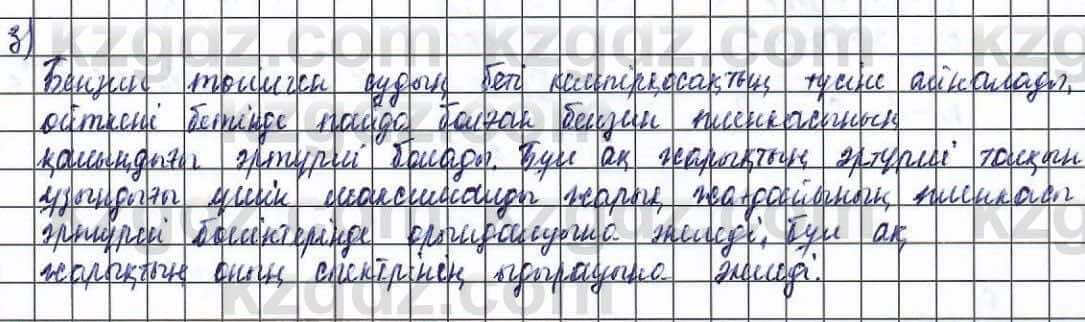 3)
Бензин тамған судың беті кемпірқосақтың түсіне айналады,
өйткені бетінде пайда болған бензин пленкасының
қалыңдығы әртүрлі болады. Бұл ақ жарықтың әртүрлі толқын
ұзындығы үшін максималды жарық жағдайының пленкасы
әртүрлі бөліктерінде орындалуына әкеледі, бұл ақ
жарықтың оның спектрінің ыдырауына әкеледі.
kzgdz.com kzgdz.com kzgdz.com